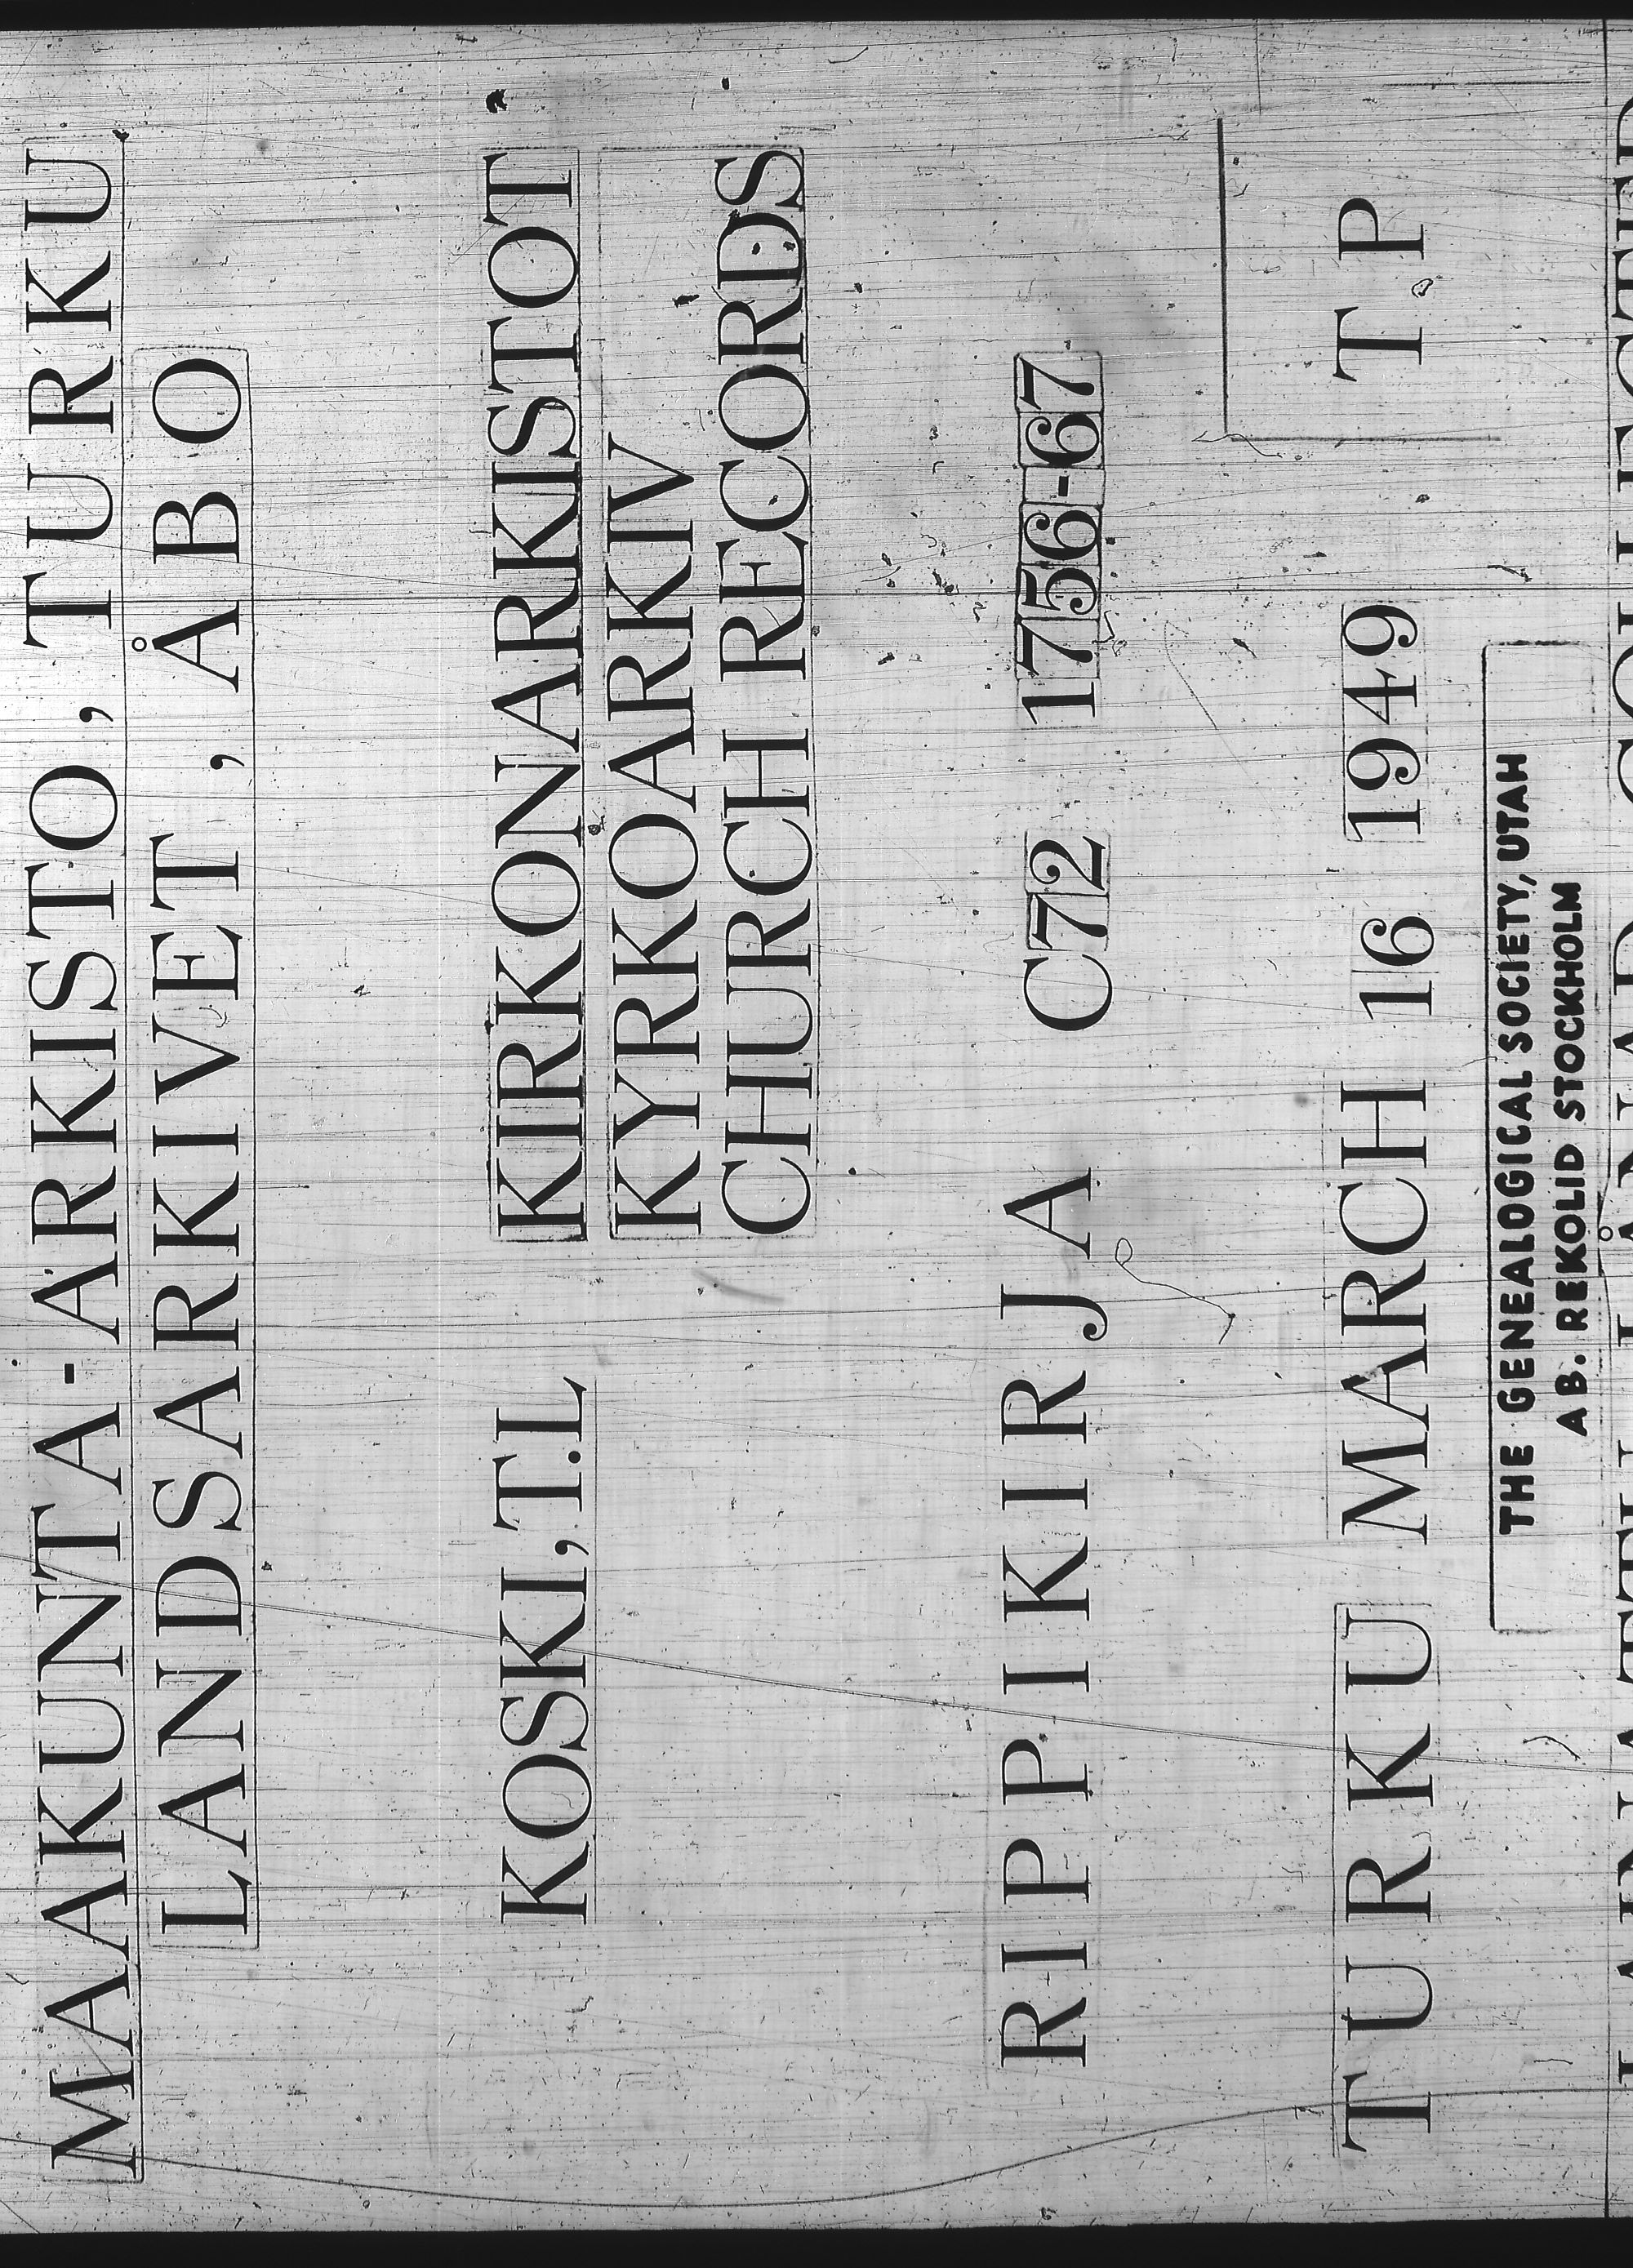 MAAKUNTA-ARKISTO, TURKU
LANDSARKIVET, ÅBO
KOSKI, T.L KIRKONARKISTOT
KYRKOARKIV
CHURCH RECORDS
RIPPIKIRJA C72 1756-67
TURKU MARCH 16 1949 T.P
THE GENEALOGICAL SOCIETY, UTAH
A B. REKOLID STOCKHOLM